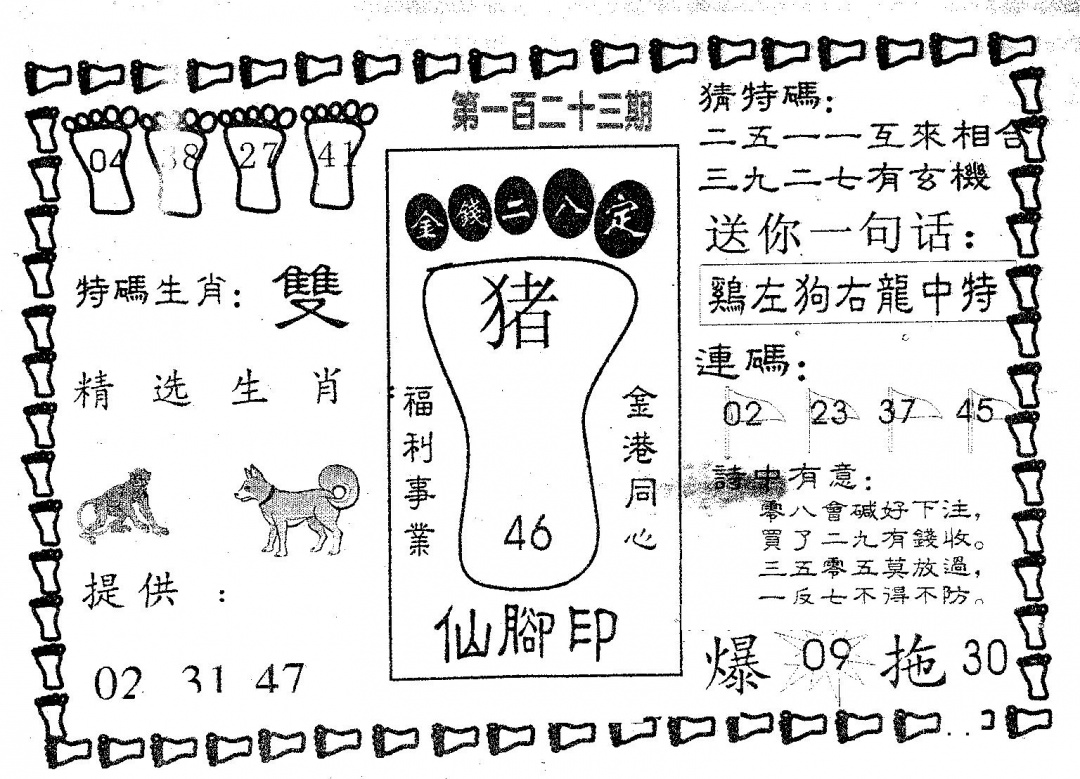 第一百二十三期
04 38 27 41
特碼生肖：雙
精选生肖
提供：
02 31 47
金錢二八定
猪
46
福利事業
金港同心
仙腳印
猜特碼：
二五一一互來相合
三九二七有玄機
送你一句话：
鷄左狗右龍中特
連碼：
02 23 37 45
詩中有意：
零八會碱好下注，
買了二九有錢收。
三五零五莫放過，
一反七不得不防。
爆 09 拖 30